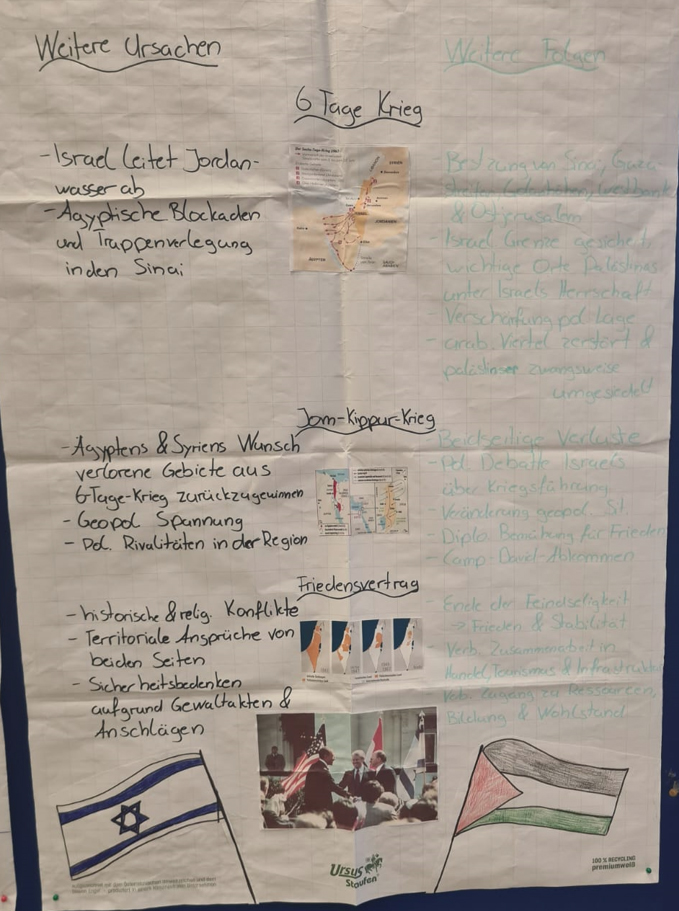 Weitere Ursachen
Weitere Folgen
6 Tage Krieg
- Israel leitet Jordan-
wasser ab
- Ägyptische Blockaden
und Truppenverlegung
in den Sinai
- Besetzung von Sinai, Gaza
& Ostjerusalem
- Israel Grenze gesichert,
wichtige Orte Palästinas
unter Israels Herrschaft
- Verschärfung pol. Lage
- arab. Viertel zerstört &
palästinser zwangsweise
umgesiedelt
Jom-Kippur-Krieg
- Ägyptens & Syriens Wunsch
verlorene Gebiete aus
6 Tage-Krieg zurückzugewinnen
- Geopol. Spannung
- Pol. Rivalitäten in der Region
- Beidseitige Verluste
- Pol. Debatte Israels
über Kriegsführung
- Veränderung geopol. St.
- Diplo. Bemühung für Frieden
- Camp-David-Abkommen
Friedensvertrag
- historische & relig. Konflikte
- Territoriale Ansprüche von
beiden Seiten
- Sicherheitsbedenken
aufgrund Gewaltakten &
Anschlägen
- Ende der Feindseligkeit
→ Frieden & Stabilität
- Verb. Zusammenarbeit in
Handel, Tourismus & Infrastruktur
- Verb. Zugang zu Ressourcen,
Bildung & Wohlstand
Ursus
Staufen
100 % RECYCLING
premiumweiß